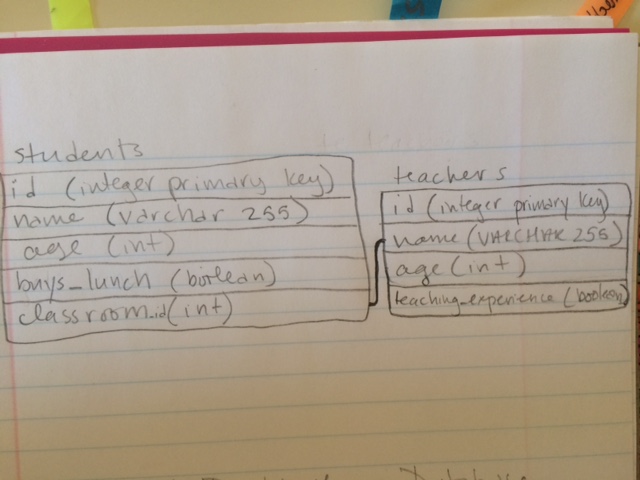 students
id (integer primary key)
name (varchar 255)
age (int)
buys_lunch (boolean)
classroom_id (int)
teachers
id (integer primary key)
name (VARCHAR 255)
age (int)
teaching_experience (boolean)